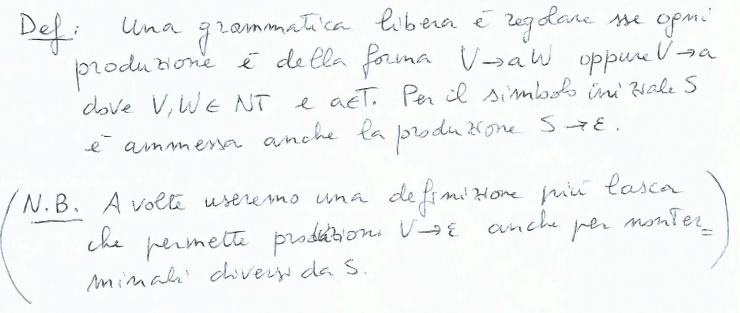 Def: Una grammatica libera è regolare sse ogni
produzione è della forma V→aW oppure V→a
dove V,W∈NT e a∈T. Per il simbolo iniziale S
è ammessa anche la produzione S→ε.
(N.B. A volte useremo una definizione più lasca
che permette produzioni V→ε anche per nonter=
minali diversi da S.)